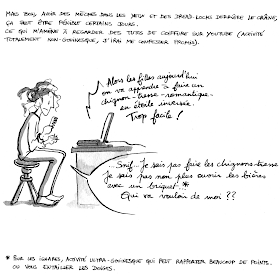 MAIS BON, AVOIR DES MÈCHES DANS LES YEUX ET DES DREAD-LOCKS DERRIÈRE LE CRÂNE,
ÇA PEUT ÊTRE PÉNIBLE CERTAINS JOURS.
CE QUI M'AMÈNE À REGARDER DES TUTOS DE COIFFURE SUR YOUTUBE (ACTIVITÉ
TOTALEMENT NON-GOUINESQUE, J'IRAI ME CONFESSER PROMIS).
Alors les filles aujourd'hui
on va apprendre à faire un
chignon-tresse-romantique-
en étoile inversée.
Trop facile !
...Snif... Je sais pas faire les chignons-tresse
Je sais pas non plus ouvrir les bières
avec un briquet.*
Qui va vouloir de moi ??
* POUR LES IGNARES, ACTIVITÉ ULTRA-GOUINESQUE QUI PEUT RAPPORTER BEAUCOUP DE POINTS.
OU VOUS ENTAILLER LES DOIGTS.